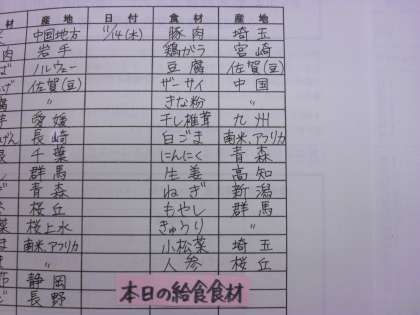 材 産地 日付 食材 産地
中国地方 11/14(木) 豚肉 埼玉
肉 岩手 鶏がら 宮崎
ば ノルウェー 豆腐 佐賀(豆)
げ 佐賀(豆) ザーサイ 中国
腐 〃 きな粉 〃
愛媛 干し椎茸 九州
げん 長崎 白ごま 南米、アフリカ
千葉 にんにく 青森
し 群馬 生姜 高知
青森 ねぎ 新潟
桜丘 もやし 群馬
菜 桜上水 きゅうり 〃
ま 南米、アフリカ 小松菜 埼玉
〃 人参 桜丘
節 静岡
長野
本日の給食食材